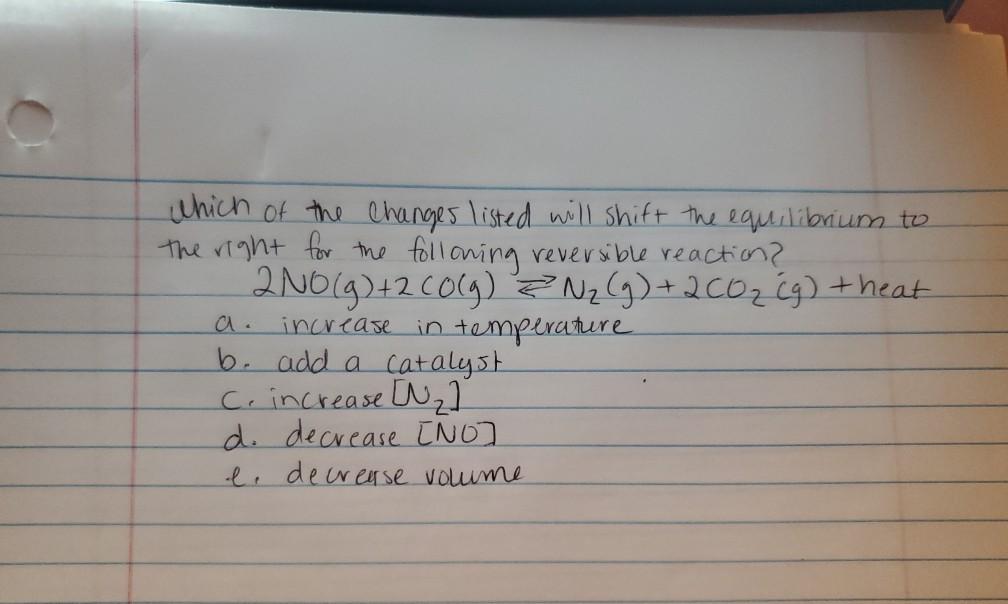 Which of the changes listed will shift the equilibrium to
the right for the following reversible reaction?
2NO(g)+2CO(g) ⇌ N₂(g)+2CO₂(g)+heat
a. increase in temperature
b. add a catalyst
c. increase [N₂]
d. decrease [NO]
e. decrease volume